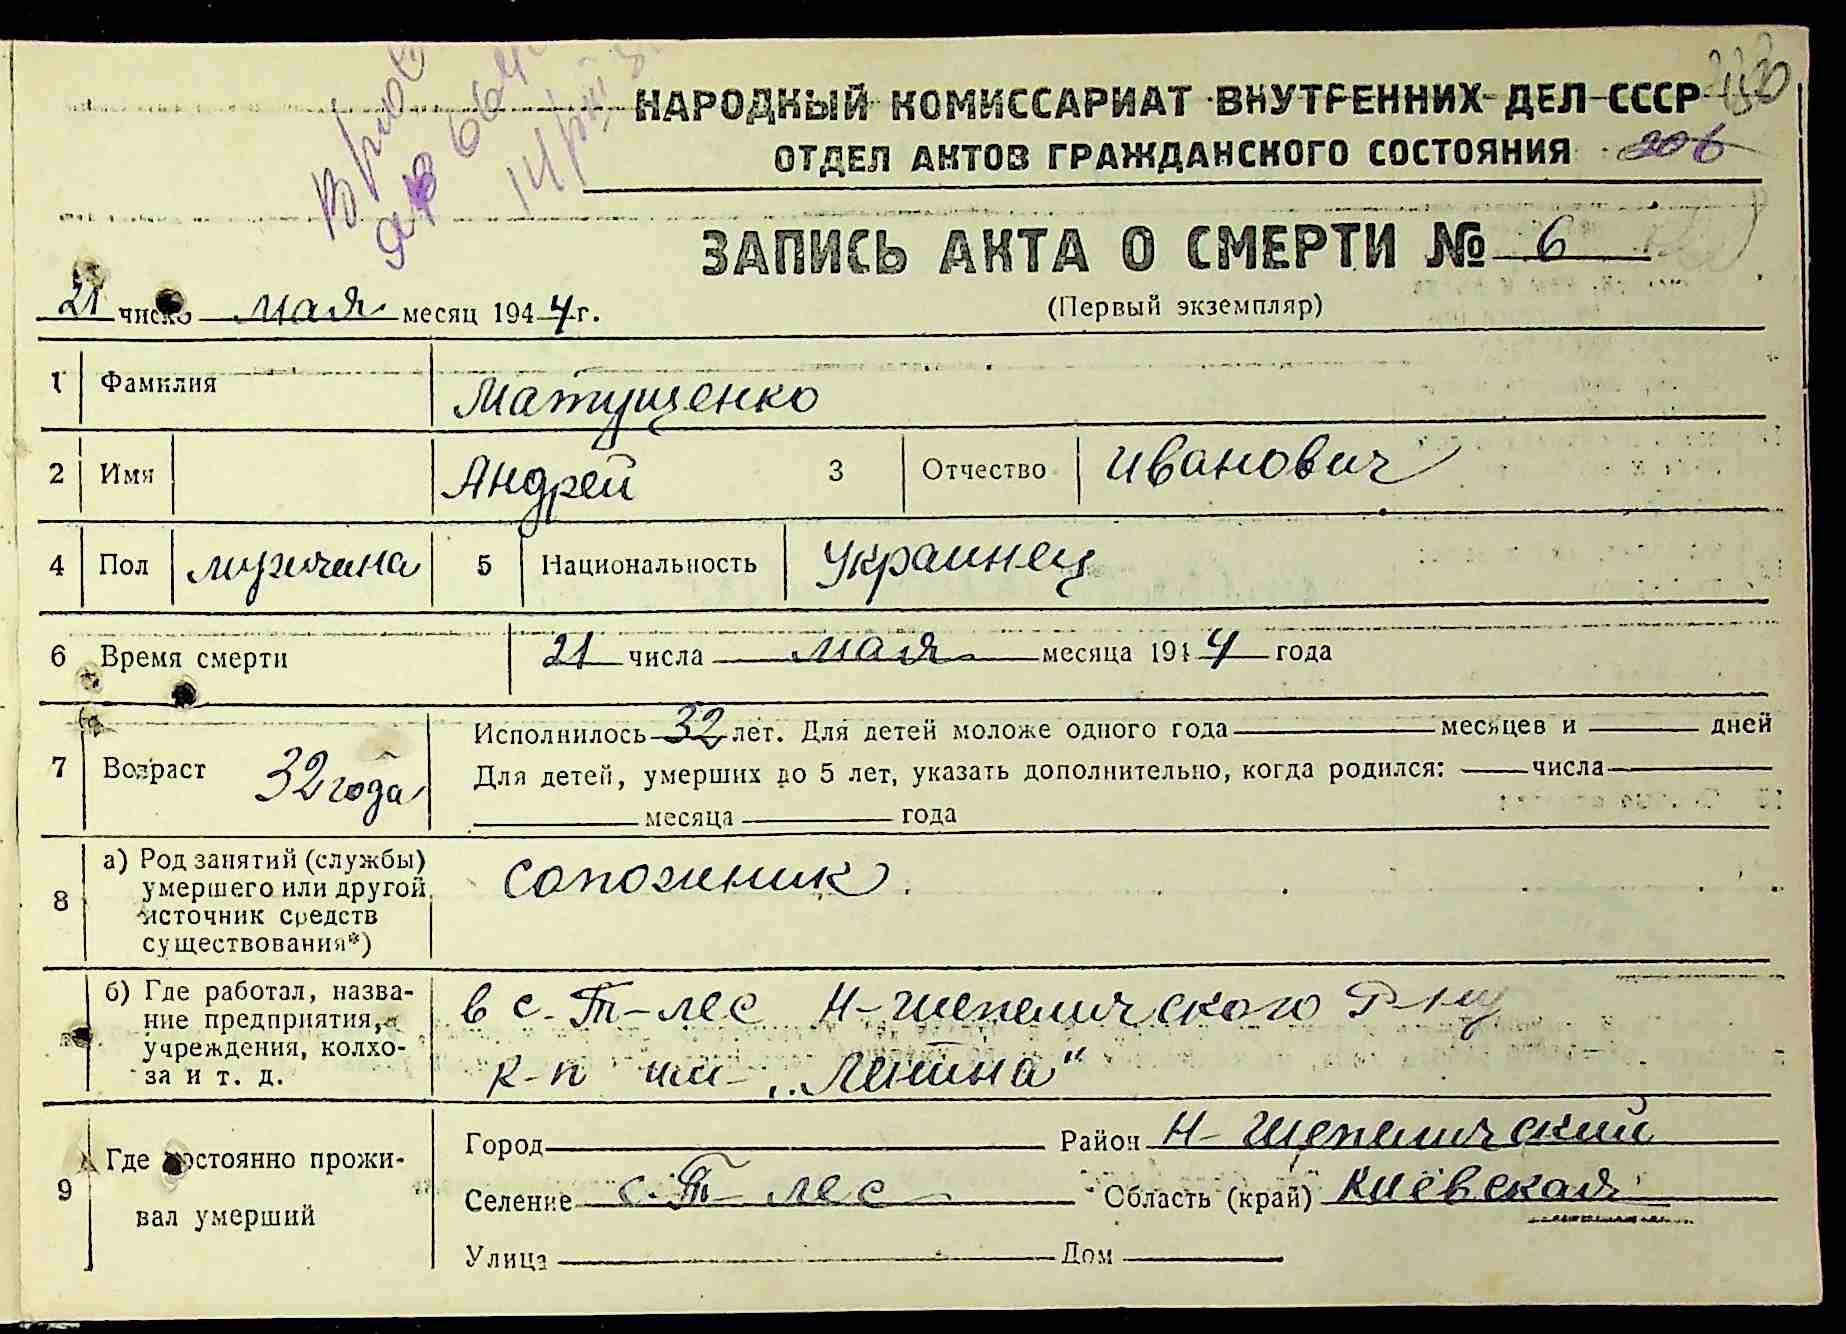 НАРОДНЫЙ КОМИССАРИАТ ВНУТРЕННИХ ДЕЛ СССР
ОТДЕЛ АКТОВ ГРАЖДАНСКОГО СОСТОЯНИЯ 206
ЗАПИСЬ АКТА О СМЕРТИ № 6
21 число мая месяц 1944 г.
(Первый экземпляр)
1 Фамилия Матущенко
2 Имя Андрей 3 Отчество Иванович
4 Пол мужчина 5 Национальность Украинец
6 Время смерти 21 числа мая месяца 1944 года
7 Возраст 32 года
Исполнилось 32 лет. Для детей моложе одного года месяцев и дней
Для детей, умерших до 5 лет, указать дополнительно, когда родился: числа
месяца года
8 а) Род занятий (службы)
умершего или другой
источник средств
существования*)
сапожник
б) Где работал, назва-
ние предприятия,
учреждения, колхо-
за и т. д.
в с. Т-лес Н-Шепеличского Р-ну
к-п им "Ленина"
9 Где постоянно прожи-
вал умерший
Город Район Н-Шепеличский
Селение с. Т-лес Область (край) Киевская
Улица Дом